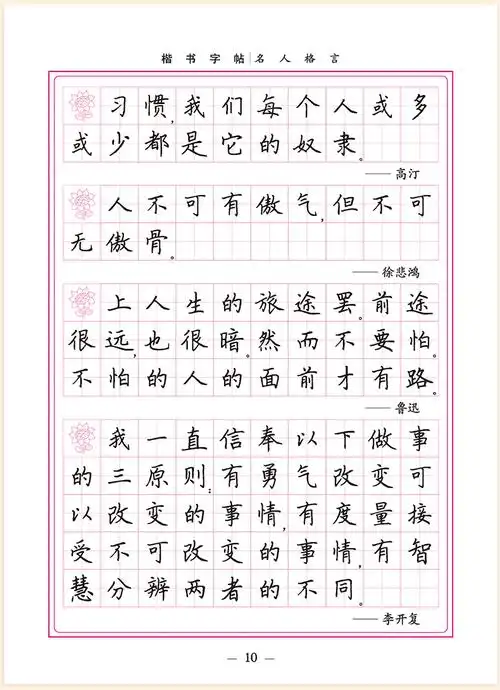 楷书字帖 名人格言
习惯,我们每个人或多
或少都是它的奴隶。
——高汀
人不可有傲气,但不可
无傲骨。
——徐悲鸿
上人生的旅途罢。前途
很远,也很暗。然而不要怕。
不怕的人的面前才有路。
——鲁迅
我一直信奉以下做事
的三原则:有勇气改变可
以改变的事情,有度量接
受不可改变的事情,有智
慧分辨两者的不同。
——李开复
— 10 —